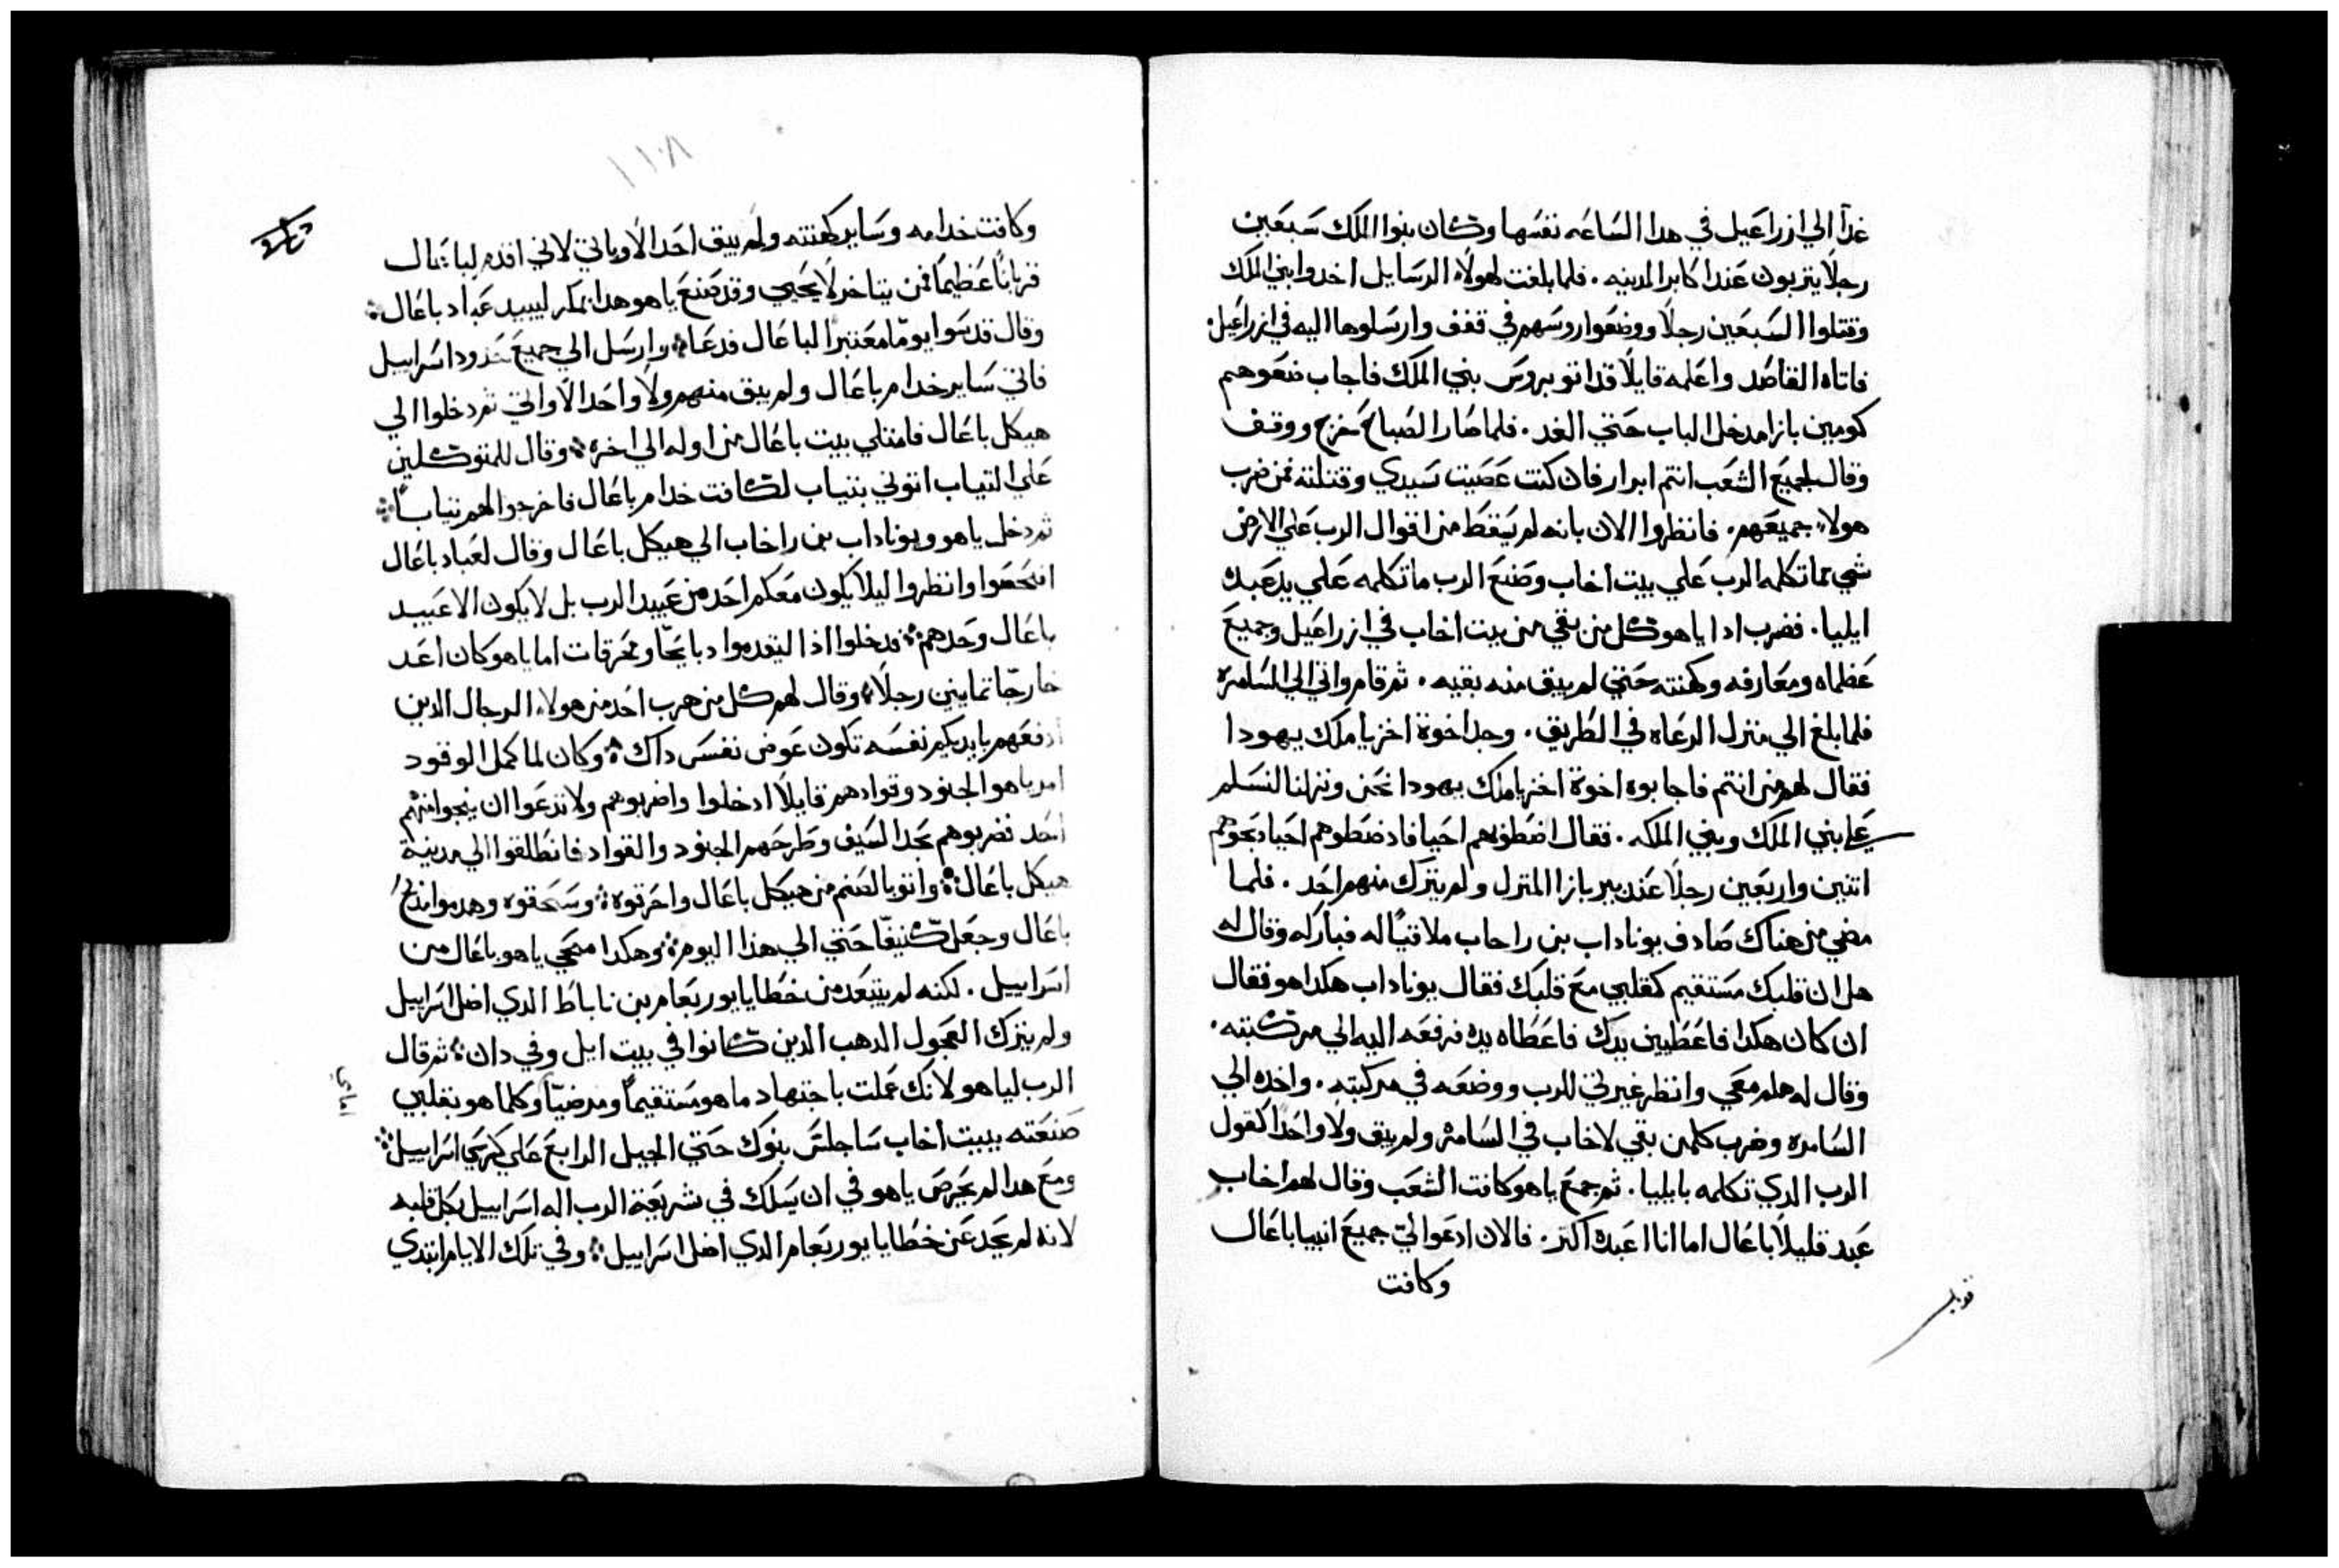 غداً الي ازراعيل في هدا الساعه نفسها وكان بنوا الملك سبعين
رجلاً يتربون عند اكابر المدينه. فلما بلغت لهولاء الرسايل اخدوا بني الملك
وقتلوا السبعين رجلاً ووضعوا روسهم في قفف وارسلوها اليه في ازراعيل.
فاتاه القاصد واعلمه قايلاً قد اتو بروس بني الملك فاجاب ضعوهم
كومين بازا مدخل الباب حتي الغد. فلما صار الصباح خرج ووقف
وقال لجميع الشعب انتم ابرار فان كنت عصيت سيدي وقتلته فمن ضرب
هولاء جميعهم. فانظروا الان بانه لم يسقط من اقوال الرب علي الارض
شي مما تكلمه الرب علي بيت اخاب وصنع الرب ما تكلمه علي يد عبده
ايليا. فضرب ادا ياهو كل من بقي من بيت اخاب في ازراعيل وجميع
عظماه ومعارفه وكهنته حتي لم يبق منه بقيه. ثم قام واتي الي السامره
فلما بلغ الي منزل الرعاه في الطريق. وجد اخوة اخزيا ملك يهودا
فقال لهم من انتم فاجابوه اخوة اخزيا ملك يهودا نحن ونزلنا لنسلم
علي بني الملك وبني الملكه. فقال اضطوهم احيا فاد ضطوهم احيا دبحوهم
اتنين واربعين رجلاً عند بير بازا المنزل ولم يترك منهم احد. فلما
مضي من هناك صادف يوناداب بن راحاب ملاقياً له فباركه وقال له
هل ان قلبك مستقيم كقلبي مع قلبك فقال يوناداب هكدا هو فقال
ان كان هكدا فاعطيني يدك فاعطاه يده فرفعه اليه الي مركبته.
وقال له هلم معي وانظر غيرتي للرب ووضعه في مركبته. واخده الي
السامره وضرب كلمن بقي لاخاب في السامره ولم يبق ولا واحداً كقول
الرب الدي تكلمه بايليا. ثم جمع ياهو كافت الشعب وقال لهم اخاب
عبد قليلاً باعال اما انا اعبده اكتر. فالان ادعوا لي جميع انبيا باعال
وكافت
قوبل
١١٠٨
وكافت خدامه وساير كهنته ولم يبق احد الا وياتي لاني اقدم لباعال
قرباناً عظيماً فمن يتاخر لا يحيي وقد صنع ياهو هدا بمكر ليبيد عباد باعال
وقال قدسوا يوماً معتبراً لباعال فدعا وارسل الي جميع حدود اسراييل
فاتي ساير خدام باعال ولم يبق منهم ولا واحد الا واتي ثم دخلوا الي
هيكل باعال فامتلي بيت باعال من اوله الي اخره وقال للمتوكلين
علي التياب اتوني بتياب لكافت خدام باعال فاخرجوا لهم تياباً
ثم دخل ياهو ويوناداب بن راخاب الي هيكل باعال وقال لعباد باعال
افتحصوا وانظروا ليلا يكون معكم احد من عبيد الرب بل لا يكون الا عبيد
باعال وحدهم فدخلوا اذا ليقدموا دبايحاً ومحرقات اما ياهو كان اعد
خارجاً تمانين رجلاً وقال لهم كل من هرب احد من هولاء الرجال الدين
ادفعهم بايديكم نفسه تكون عوض نفس داك وكان لما كمل الوقود
امر ياهو الجنود وقوادهم قايلاً ادخلوا واضربوهم ولا تدعوا ان ينجوا منهم
احد فضربوهم بحد السيف وطرحهم الجنود والقواد فانطلقوا الي مدينة
هيكل باعال واتو بالصنم من هيكل باعال واحرقوه وسحقوه وهدموا مذبح
باعال وجعل كنيفاً حتي الي هذا اليوم وهكدا محي ياهو باعال من
اسراييل. لكنه لم يبتعد من خطايا يوربعام بن ناباط الدي اضل اسراييل
ولم يترك العجول الدهب الدين كانوا في بيت ايل وفي دان ثم قال
الرب لياهو لانك عملت باجتهاد ما هو مستقيماً ومرضياً وكلما هو بقلبي
صنعته ببيت اخاب ساجلس بنوك حتي الجيل الرابع علي كرسي اسراييل
ومع هدا لم يحرص ياهو في ان يسلك في شريعة الرب اله اسراييل بكل قلبه
لانه لم يحد عن خطايا يوربعام الدي اضل اسراييل وفي تلك الايام ابتدي